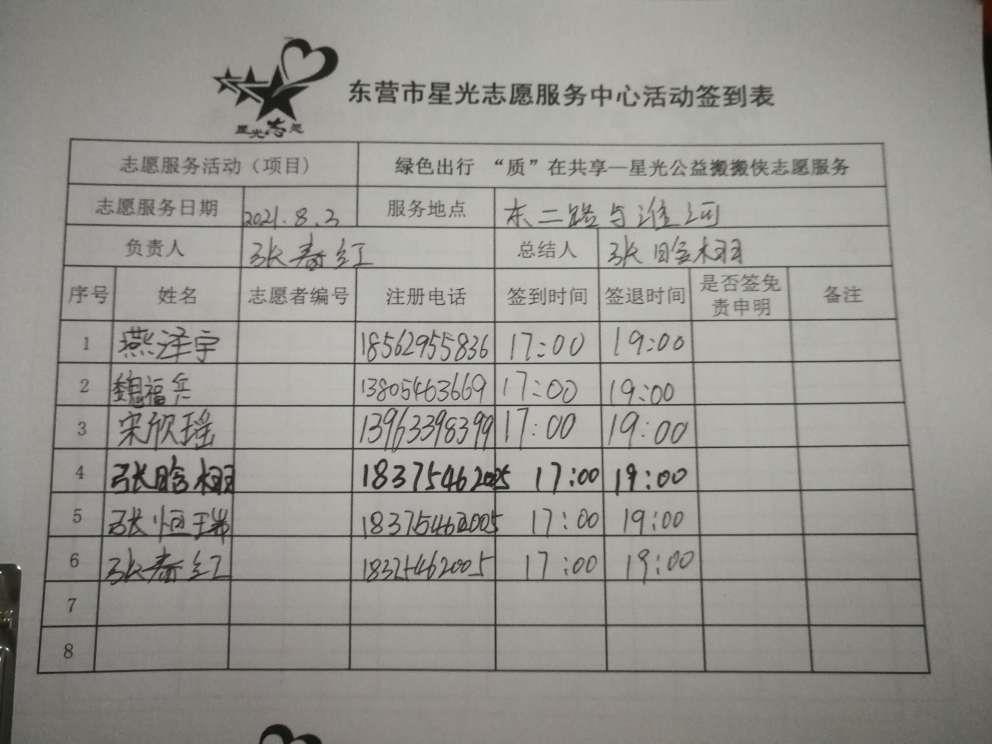 星光志愿
东营市星光志愿服务中心活动签到表
志愿服务活动（项目） 绿色出行 “质”在共享—星光公益搬搬侠志愿服务
志愿服务日期 2021.8.3 服务地点 东二路与淮河
负责人 张春红 总结人 张晗栩
序号 姓名 志愿者编号 注册电话 签到时间 签退时间 是否签免责申明 备注
1 燕泽宇 18562955836 17:00 19:00
2 魏福兵 13805463669 17:00 19:00
3 宋欣瑶 13963398399 17:00 19:00
4 张晗栩 18375462005 17:00 19:00
5 张恒瑞 18375462005 17:00 19:00
6 张春红 18375462005 17:00 19:00
7
8